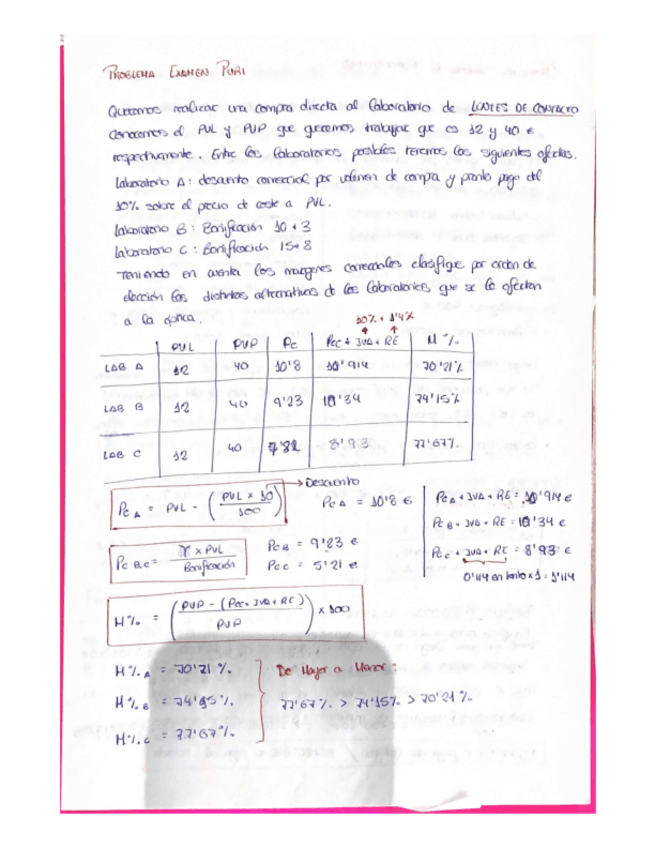 PROBLEMA EXAMEN PURI
Queremos realizar una compra directa al laboratorio de LENTES DE CONTACTO
Conocemos el PVL y PVP que queremos trabajar que es 12 y 40 €
respectivamente. Entre los laboratorios posibles tenemos las siguientes ofertas.
Laboratorio A: descuento comercial por volumen de compra y pronto pago del
10% sobre el precio de coste a PVL.
laboratorio B: Bonificación 10+3
laboratorio C: Bonificación 15+8
Teniendo en cuenta los margenes comerciales clasifique por orden de
elección las distintas alternativas de los laboratorios que se le ofertan
a la óptica.
10% + 1'4%
PVL PVP Pc Pcc + IVA + RE M %
LAB A 12 40 10'8 10'914 70'21%
LAB B 12 40 9'23 10'34 74'15%
LAB C 12 40 8'93 77'67%
Descuento
Pc A = PVL - (PVL x 10 / 100) Pc A = 10'8 €
Pc A + IVA + RE = 10'914 €
Pc B + IVA + RE = 10'34 €
Pc B,C = x PVL / Bonificación
Pc B = 9'23 €
Pc C = 5'21 €
Pc C + IVA + RE = 8'93 €
0'114 en tanto x 1 = 1'114
M% = (PVP - (Pcc + IVA + RE) / PVP) x 100
M% A = 70'21 %. De Mayor a Menor:
M% B = 74'15 %. 77'67 % > 74'15% > 70'21 %
M% C = 77'67 %.